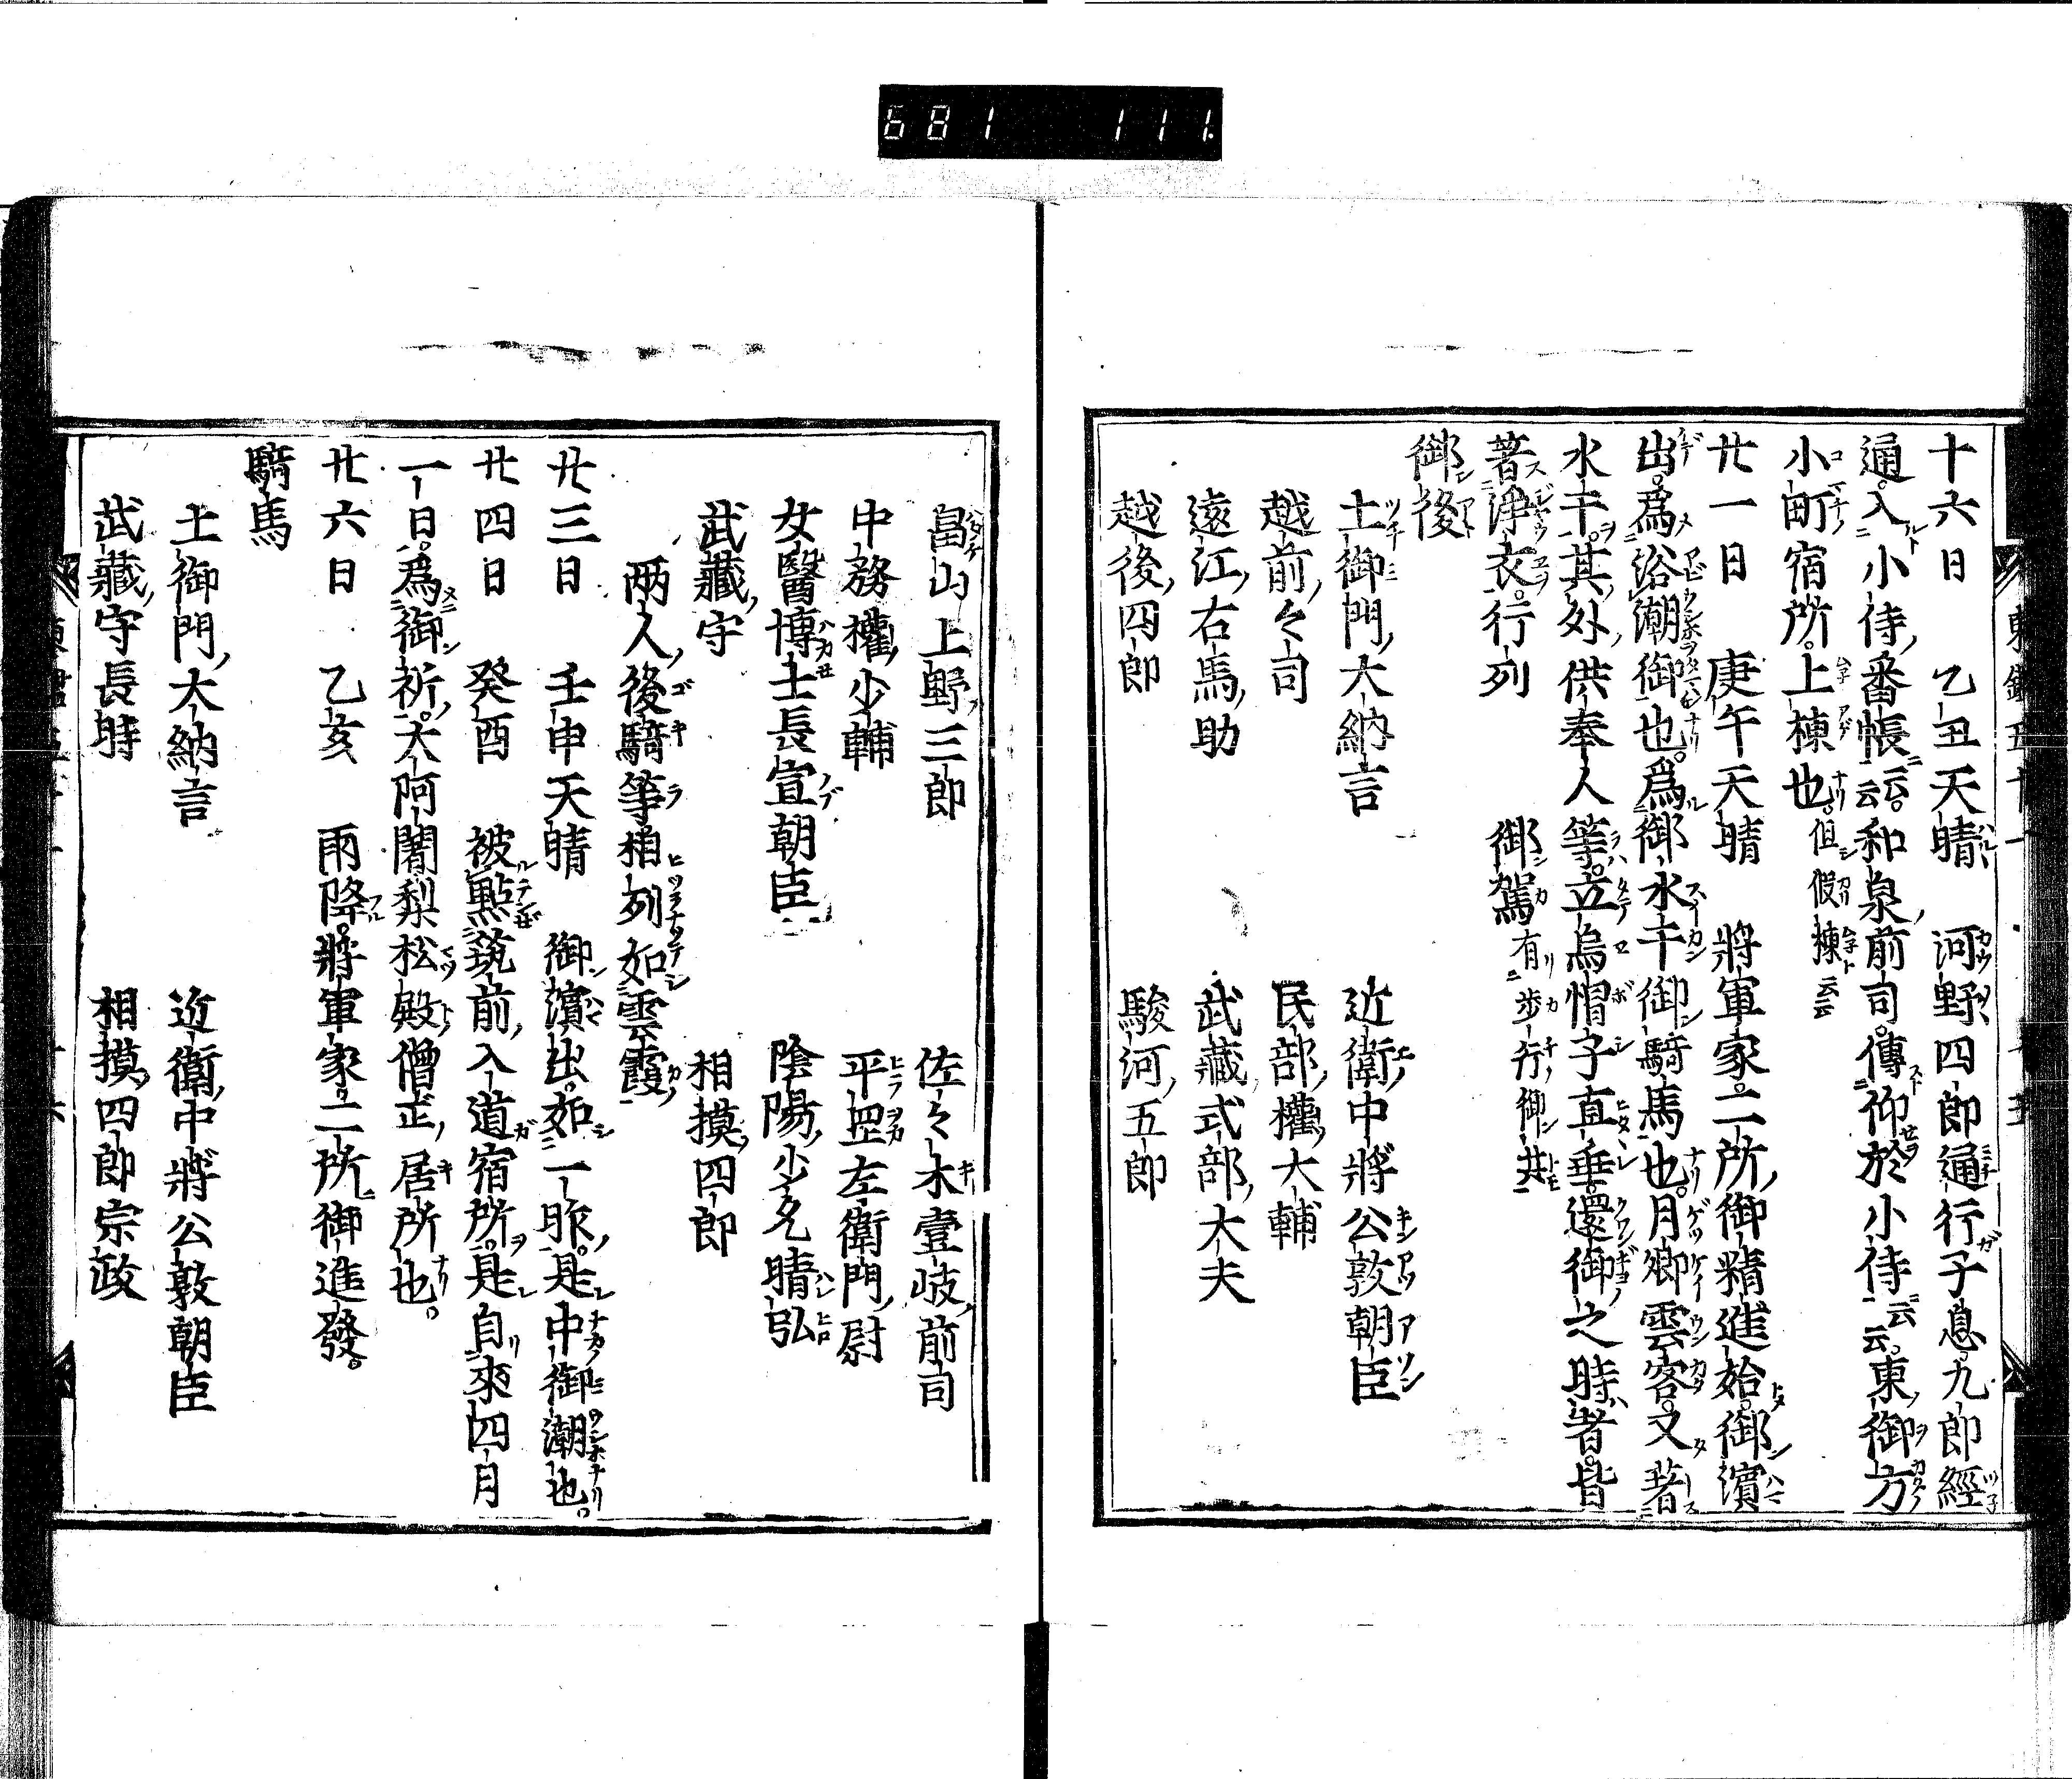 681 111
十六日 乙丑天晴 河野四郎通行子息九郎經
通入小侍番帳云云和泉前司傳仰於小侍云云東御方
小町宿所上棟也但假棟云云
廿一日 庚午天晴 將軍家二所御精進始御濱
出爲浴潮御也爲御水干御騎馬也月卿雲客又著
水干其外供奉人等立烏帽子直垂還御之時者皆
著淨衣行列 御駕有步行御共
御後
土御門大納言 近衞中將公敦朝臣
越前々司 民部權大輔
遠江右馬助 武藏式部大夫
越後四郎 駿河五郎
畠山上野三郎 佐々木壹岐前司
中務權少輔 平罡左衞門尉
女醫博士長宣朝臣 陰陽少允晴弘
武藏守 相摸四郎
兩人後騎等相列如雲霞
廿三日 壬申天晴 御濱出如一昨是中御潮也
廿四日 癸酉 被點筑前入道宿所是自來四月
一日爲御祈大阿闍梨松殿僧正居所也
廿六日 乙亥 雨降將軍家二所御進發
騎馬
土御門大納言 近衞中將公敦朝臣
武藏守長時 相摸四郎宗政